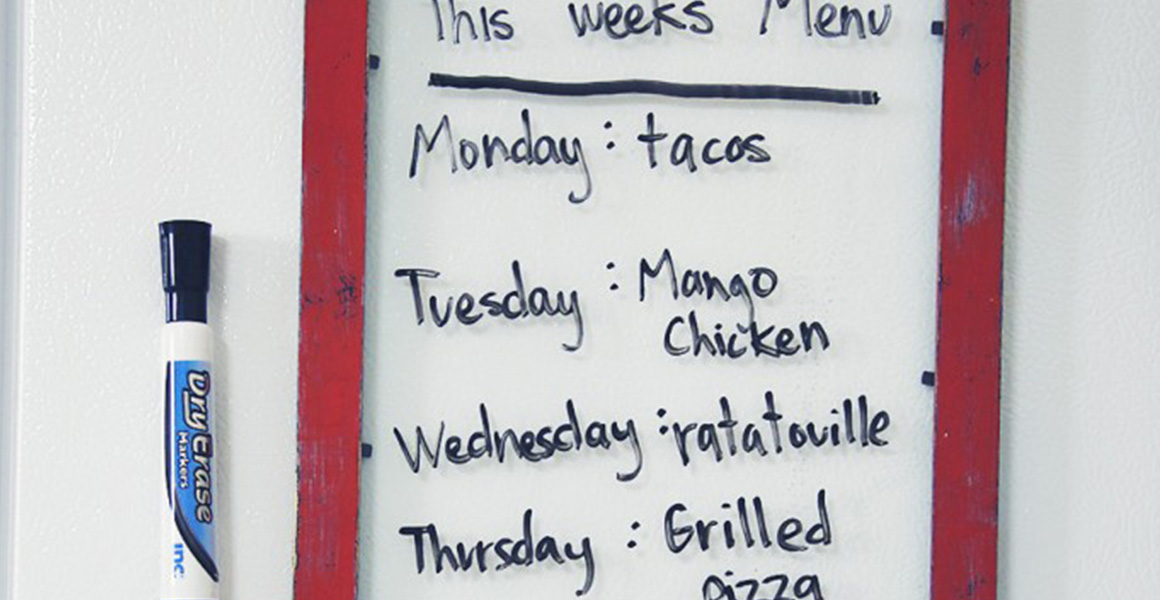 This weeks Menu
Monday : tacos
Tuesday : Mango
Chicken
Wednesday : ratatouille
Thursday : Grilled
pizza
Dry Erase
Markers
inc.